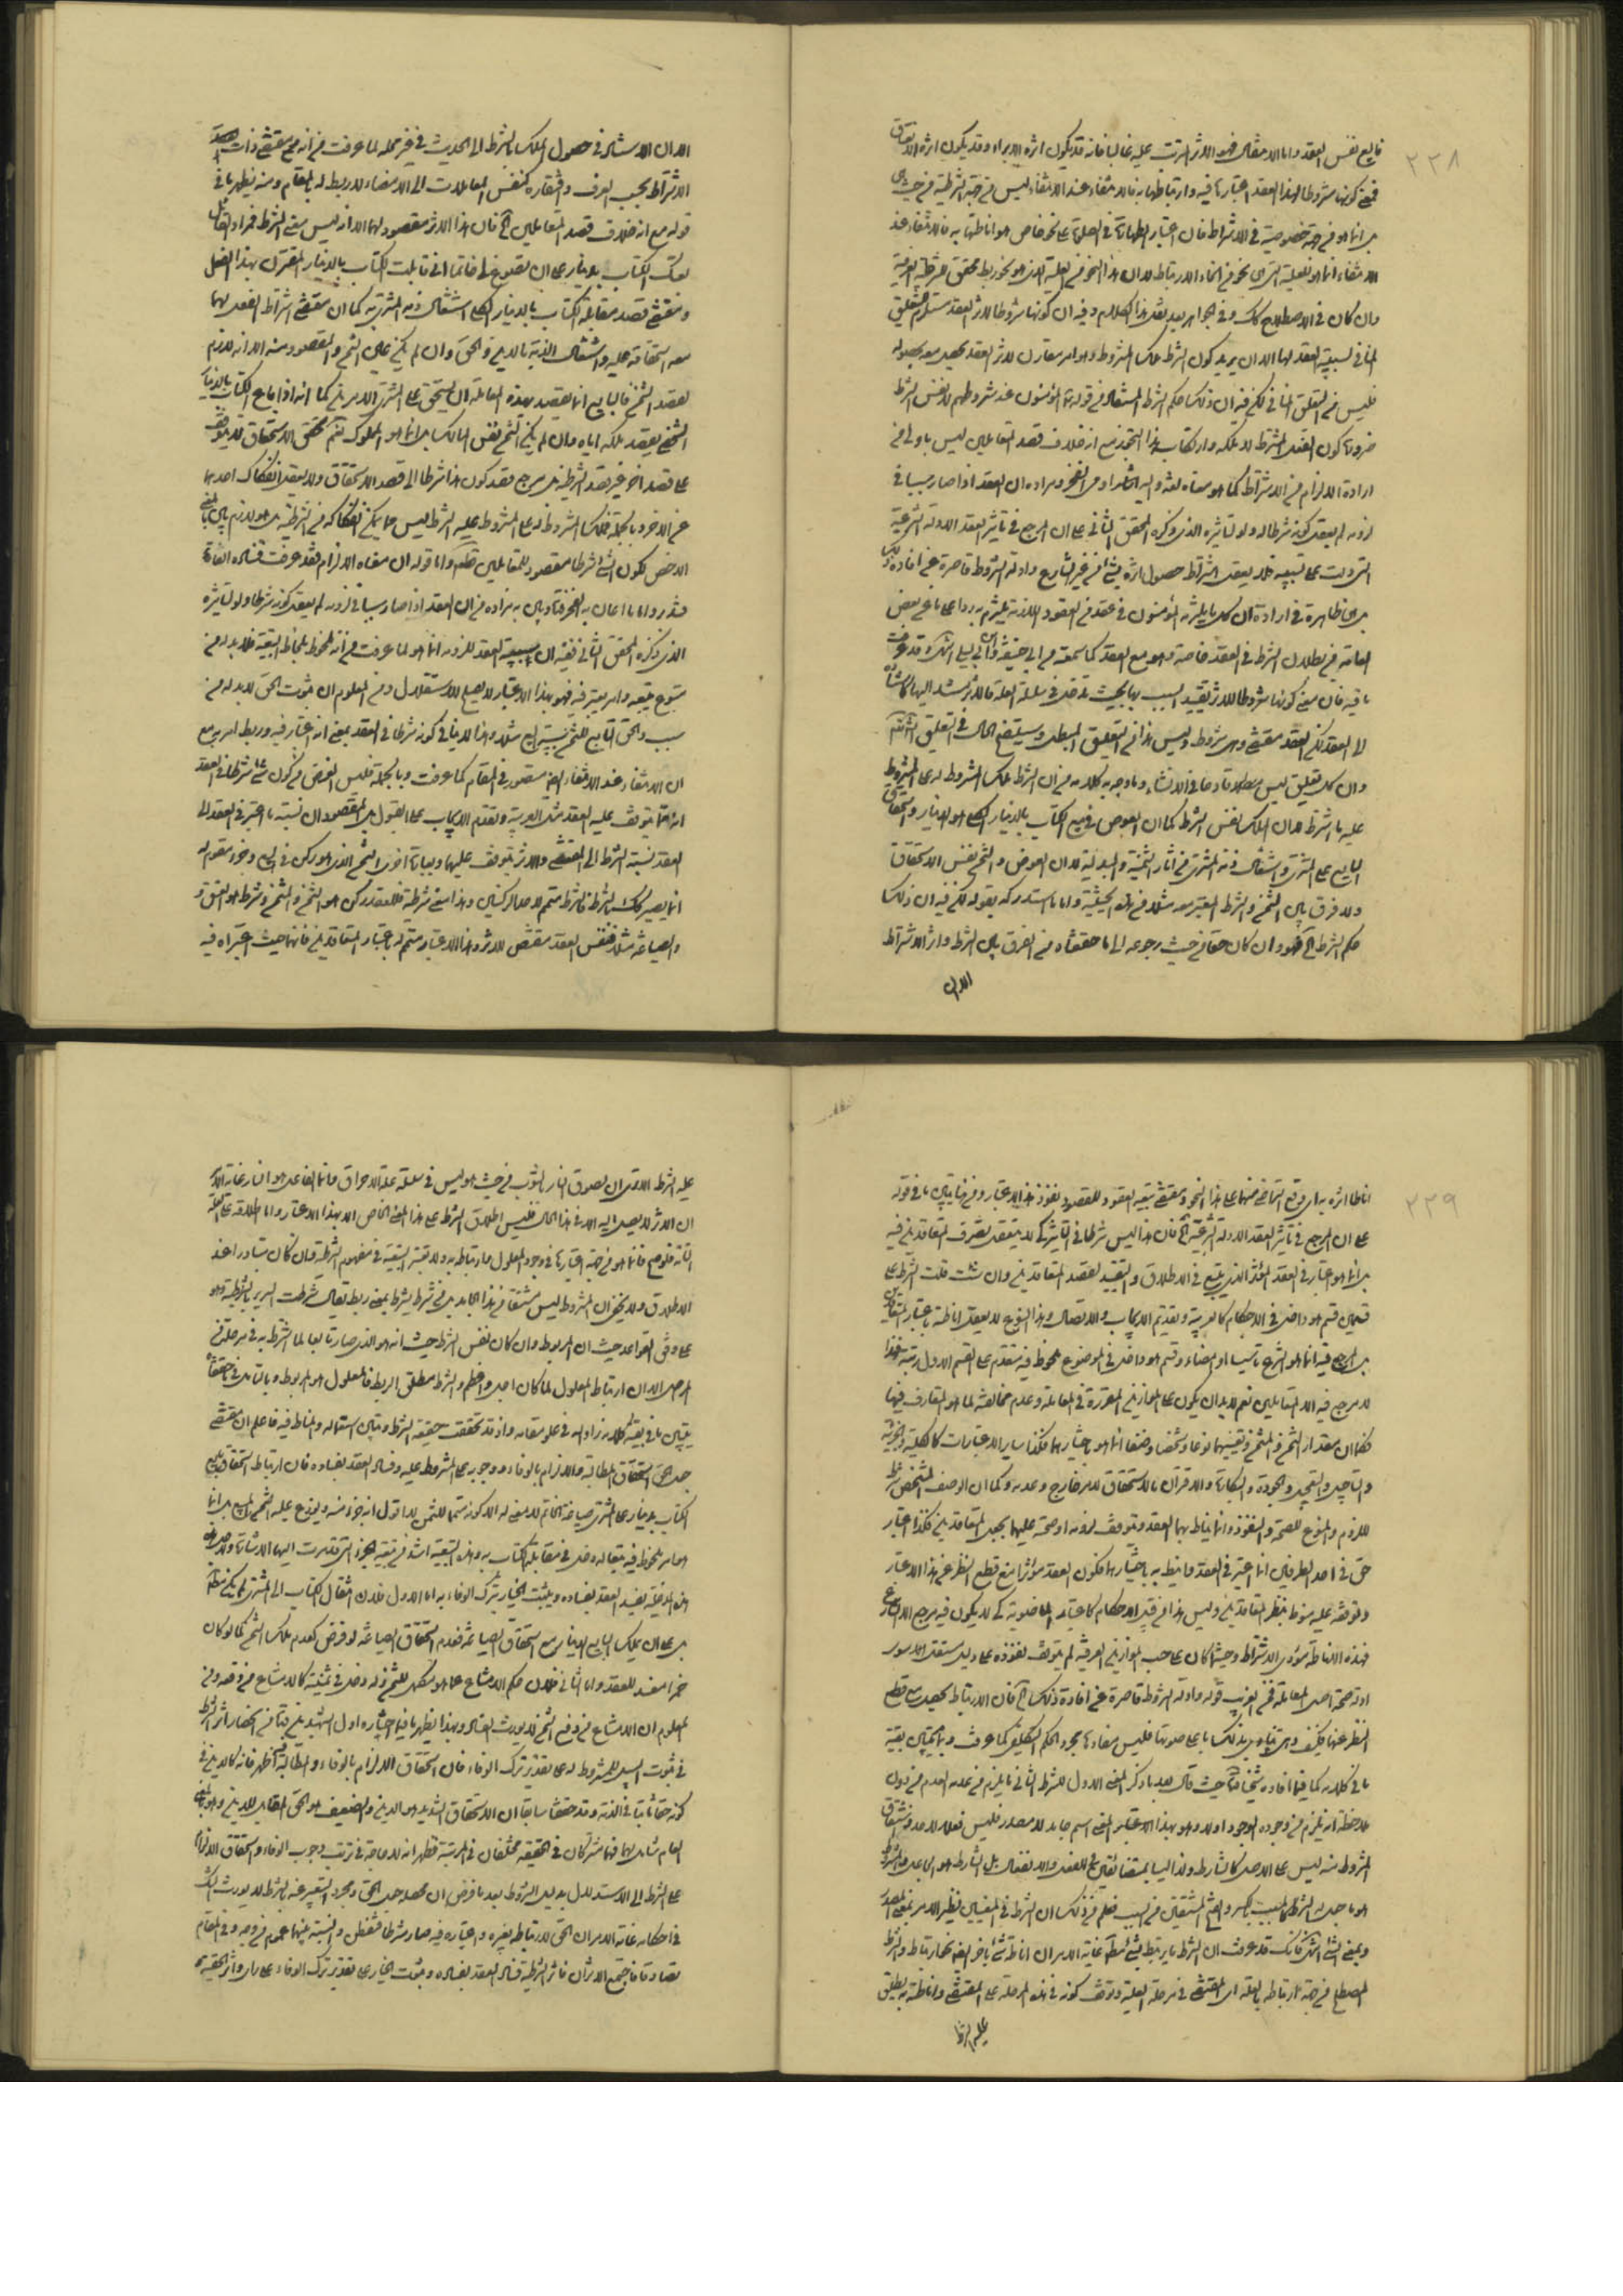 ٢٣٨
تابع نفس العقد واما الانتقال فهو الاثر المترتب عليه غالبا فانه قد يكون اثره الابراء وقد يكون اثره
فمعنى كونها شروطا لهذا العقد اعتبارها فيه وارتباطها به فالانتفاء عند الانتفاء ليس من جهة الشرطية من حيث هي
بل انما هو من جهة خصوصية في الاشتراط فان اعتبار الطهارة في الصلوة على نحو خاص هو اناطتها به فالانتفاء عند
الانتفاء انما هو لعلية التي هي نحو من انحاء الارتباط لان هذا النحو من العلية الذي هو نحو ربط محقق
وان كان في الاصطلاح كك وفي الجواهر بعد نقل هذا الكلام وفيه ان كونها شروطا لاثر العقد مستلزم للتعليق
المنافي لسببية العقد لها الا ان يريد كون الشرط ملك المشروط وهو امر مقارن لاثر العقد يحصل معه بحصوله
فليس من التعلق المنافي لكن فيه ان ذلك حكم الشرط المستفاد من قوله المؤمنون عند شروطهم لا نفس الشرط
ضرورة كون القصد المشترط لا تملكه وارتكاب هذا التجوز مع انه خلاف قصد المتعاملين ليس باولى من
ارادة الالزام من الاشتراط كما هو معناه لغة واليه اشار او من الفخر ومراده ان العقد اذا صار سببا في
لزومه لم يعقل كونه شرطا له ولو لتاثيره الذي ذكره المحقق الثاني على ان المرجع في تاثير العقد الادلة الشرعية
التي دلت على سببيته فلا يعقل اشتراط حصول اثره بشئ من غير الشارع وادلة الشروط قاصرة عن افادة
بل هي ظاهرة في ارادة ان كل ما يلتزمه المؤمنون في عقد من العقود اللازمة يلتزم به ردا على ما عن بعض
العامة من بطلان الشرط في العقد خاصة وهو مع العقد كما سمعته من ابي حنيفة وابن ابي ليلى
ما فيه فان معنى كونها شروطا للاثر تقييد السبب بها بحيث تدخل في سلسلة العلة فالاثر يستند اليها
الى العقد لكن العقد مقتضى وهي شروط وليس هذا من التعليق المبطل وسيتضح الحال في التعليق
وان كل تعليق ليس مبطلا قادحا في الانشاء وما وجه به كلامه من ان الشرط ملك المشروط له على المشروط
عليه ما شرط لان الملك نفس الشرط كما ان العوض في بيع الكتاب بالدينار الكلي هو الدينار واستحقاق
البايع على المشتري واشتغال ذمة المشتري من آثار الثمنية والبدلية لان العوض والثمن نفس الاستحقاق
ولا فرق بين الثمن والشرط المعتبر معه مثلا من هذه الحيثية واما ما استدركه بقوله لكن فيه ان ذلك
حكم الشرط الخ فهو وان كان حقا من حيث رجوعه الى ما حققناه من الفرق بين الشرط واثر الاشتراط
الا ان
الا ان الاستناد في حصول الملك بالشرط الى الحديث في غير محله لما عرفت من انه من مقتضى ذات
الاشتراط بحسب العرف وافتقاره كنفس المعاملات الى الامضاء لا ربط له بالمقام ومنه يظهر ما في
قوله مع انه خلاف قصد المتعاملين الخ فان هذا الاثر مقصود لهما الا انه ليس معنى الشرط فمراد القائل
بعتك الكتاب بدينار على ان تصوغ لي خاتما اني قابلت الكتاب بالدينار المقترن بهذا الفعل
ومقتضى قصد مقابلة الكتاب بالدينار الكلي اشتغال ذمة المشتري به كما ان مقتضى اشتراط الفعل لهما
معه استحقاقه عليه واشتغال الذمة بالدين والحق وان لم يكن عين الثمن والمقصود منه الا انه لازم
لقصد الثمن فالبايع انما يقصد بهذه المعاملة ان يستحق على المشتري الامرين كما انه اذا باع الكتاب بالدينار
الشخصي يقصد تملكه اياه وان لم يكن الثمن نفس المالك بل انما هو المملوك نعم تحقق الاستحقاق لا يتوقف
على قصد آخر غير قصد الشرطية بل مرجع قصد كون هذا شرطا الى قصد الاستحقاق ولا يعقل انفكاك احدهما
عن الآخر وبالجملة فملك المشروط له على المشروط عليه الشرط ليس مما يمكن انفكاكه من الشرطية بل هو لازم بين بالمعنى
الاخص لكون الشئ شرطا مقصود للمتعاملين قطعا واما قوله ان معناه الالزام فقد عرفت فساده
واما ما احال به الفخر فتاويل به مراده من ان العقد اذا صار سببا في لزومه لم يعقل كونه شرطا ولو لتاثيره
الذي ذكره المحقق الثاني ففيه ان سببية العقد للزومه انما هو لما عرفت من انه ملحوظ بلحاظ التبعية فلا بد له من
متبوع يتبعه وامر يعتبر فيه فهو بهذا الاعتبار لا يصلح للاستقلال ومن المعلوم ان ثبوت الحق لا بد له من
سبب والحق التابع للثمن سببه البيع مثلا وهذا لا ينافي كونه شرطا في العقد بمعنى انه اعتبار فيه وربط امر به مع
ان الانتفاء عند الانتفاء ايضا متصور في المقام كما عرفت وبالجملة فليس الغرض من كون شئ شرطا في العقد
انه مما يتوقف عليه العقد مثل العربية وتقدم الايجاب على القبول بل المقصود ان نسبة ما اعتبر في العقد الى
العقد نسبة الشرط الى المقتضي والاثر يتوقف عليهما وبعبارة اخرى الثمن الذي هو ركن في البيع وجزء مقوم له
انما يصير كك بالشرط فالشرط متمم لاصل الركنين وهذا معنى شرطية فللعقد ركن هو الثمن والمثمن وشرط هو العتق
والصياغة مثلا فنفس العقد مقتض للاثر وهذا الاعتبار متمم له باعتبار المتعاقدين فانهما حيث اعتبراه فيه
٢٣٩
اناطا اثره به اي وقع التراضي منهما على هذا النحو ومقتضى تبعية العقود للقصود نفوذ هذا الاعتبار ومن هنا يتبين ما في قوله
على ان المرجع في تاثير العقد الادلة الشرعية الخ فان هذا ليس شرطا في التاثير كي لا يتعقل تصرف المتعاقدين فيه
بل انما هو اعتبار في العقد المؤثر الذي يتبع في الاطلاق والتقييد لقصد المتعاقدين وان شئت قلت الشرط على
قسمين قسم هو داخل في الاحكام كالعربية وتقديم الايجاب والاتصال وهذا النوع لا يعقل اناطته باعتبار
بل المرجع فيه انما هو الشرع تاسيسا او امضاء وقسم هو داخل في الموضوع ملحوظ فيه متقدم على القسم الاول رتبة فهذا
لا مرجع فيه الا المتعاملين نعم لا بد ان يكون على الموازين المقررة في المعاملة وعدم مخالفته لما هو المتعارف فيها
فكما ان مقدار الثمن والمثمن وتعيينهما نوعا وشخصا وصنفا انما هو باختيارهما فكذا ساير الاعتبارات كالكلية والجزئية
والتاجيل والتعجيل والجودة والبكارة والاقتران بالاستحقاق لامر خارج وعدمه وكما ان الوصف المشخص شرط
للزوم والنوع للصحة والنفوذ وانما يناط بهما العقد ويتوقف لزومه او صحته عليهما بجعل المتعاقدين فكذا اعتبار
حق في احد الطرفين انما اعتبر في العقد وانيط به باختيارهما فكون العقد مؤثرا مع قطع النظر عن هذا الاعتبار
وتوقفه عليه منوط بنظر المتعاقدين وليس هذا من قبيل الاحكام كاعتبار الماضوية كي لا يكون فيه مرجع الا الشارع
فهذه الاناطة مؤدى الاشتراط وحيث كان على حسب الموازين العرفية لم يتوقف نفوذه على دليل مستقل
ادلة صحة اصل المعاملة فمن الغريب قوله وادلة الشروط قاصرة عن افادة ذلك الخ فان الارتباط يحصل مع قطع
النظر عنها فكيف
ما في كلامه كما فيما افاده شيخنا حيث قال بعد ما ذكر المعنى الاول للشرط الثاني ما يلزم من عدمه العدم من دون
ملاحظة انه يلزم من وجوده الوجود اولا وهو بهذا الاعتبار المعنى اسم جامد لا مصدر فليس فعلا لاحد واشتقاق
المشروط منه ليس على الاصل كالشارط ولذا ليسا بمتضايفين في الفعل والانفعال بل الشارط هو الجاعل والمشروط
هو ما جعل له الشرط كالمسبب بالكسر والفتح المشتقين من السبب فعلم من ذلك ان الشرط في المعنيين نظير الامر بمعنى المصدر
وبمعنى الشئ انتهى فانك قد عرفت ان الشرط ما يرتبط بشئ مطلقا غاية الامر ان اناطة شئ بآخر ايضا نحو ارتباط والشرط
المصطلح من جهة ارتباطه بالعلة اي المقتضي في مرحلة العلية وتوقف كونه في هذه المرحلة على المقتضي واناطته به يطلق
عليه الشرط
عليه الشرط الا ترى ان لصوق النار بالثوب من حيث هو ليس في سلسلة علة الاحراق وانما الفاعل هو النار غاية الامر
ان الاثر لا يصل اليه الا في هذا الحال فليس اطلاق الشرط على هذا المعنى الخاص الا بهذا الاعتبار واما اطلاقه على العلة
التامة فانما هو من جهة اعتبارها في وجود المعلول وارتباطه به ولا تعتبر التبعية في مفهوم الشرط وان كان تتبادر عند
الاطلاق ولا يخفى ان المشروط ليس مشتقا من هذا الجامد بل من شرط يشرط بمعنى ربط يقال شرطت السرير بالشريط وهو
على وفق القواعد حيث ان المربوط وان كان نفس الشرط حيث انه هو الذي صار تابعا لما اشترط به في مرحلة من
المراحل الا ان ارتباط المعلول لما كان اجلى واعظم والشرط مطلق الربط فالمعلول هو المربوط وبالتامل فيما حققناه
يتبين ما في بقية كلامه زاد الله في علو مقامه واذ قد تحققت حقيقة الشرط وتبين استعماله والمناط فيه فاعلم ان مقتضى
جعل حق استحقاق المطالبة والالزام بالوفاء ووجوبه على المشروط عليه وفساد العقد بفساده فان ارتباط استحقاق
الكتاب بدينار على المشتري صياغة الخاتم لا معنى له الا كونه متمما للثمن لا اقول انه جزء منه ويوزع عليه الثمن المبيع بل انما
هو امر ملحوظ فيه بتعاله دخل في مقابلة الكتاب به وهذه التبعية اشد من تبعية الجزء التي تقدمت اليها الاشارة
هذه المدخلية يفسد العقد بفساده ويثبت الخيار بترك الوفاء به اما الاول فلان انتقال الكتاب الى المشتري لم يكن مطلقا
بل على ان يملك البايع الدينار مع استحقاق الصياغة فعدم استحقاق الصياغة لو فرض كعدم ملك الثمن كما لو كان
خمرا مفسد للعقد واما الثاني فلان حكم الامتناع عما هو مكمل للثمن وله دخل في ثمنيته كالامتناع من دفعه ومن
المعلوم ان الامتناع من دفع الثمن لا يورث الفساد وبهذا يظهر ما فيما اختاره اول الشهيدين قدس سرهما من انحصار اثر الشرط
في ثبوت السبيل للمشروط له على تقدير ترك الوفاء فان استحقاق الالزام بالوفاء والمطالبة اظهر فانه كالدين في
كونه حقا ثابتا في الذمة وقد حققنا سابقا ان الاستحقاق الشديد هو الدين والضعيف هو الحق المقابل للدين وهو بالمعنى
العام شامل لهما فهما مشتركان في الحقيقة مختلفان في المرتبة فظهر انه لا حاجة في ترتب وجوب الوفاء واستحقاق الالزام
على الشرط الى الاستدلال بدليل الشروط بعد ما فرض ان محصله جعل الحق ومجرد التعبير عنه بالشرط لا يورث الشك
في احكامه غاية الامر ان الحق لارتباطه بغيره واعتباره فيه صار شرطا فتفطن والنسبة بينهما عموم من وجه وفي المقام
تصادقا فاجتمع الاثران فاثر الشرطية فساد العقد بفساده وثبوت الخيار على تقدير ترك الوفاء